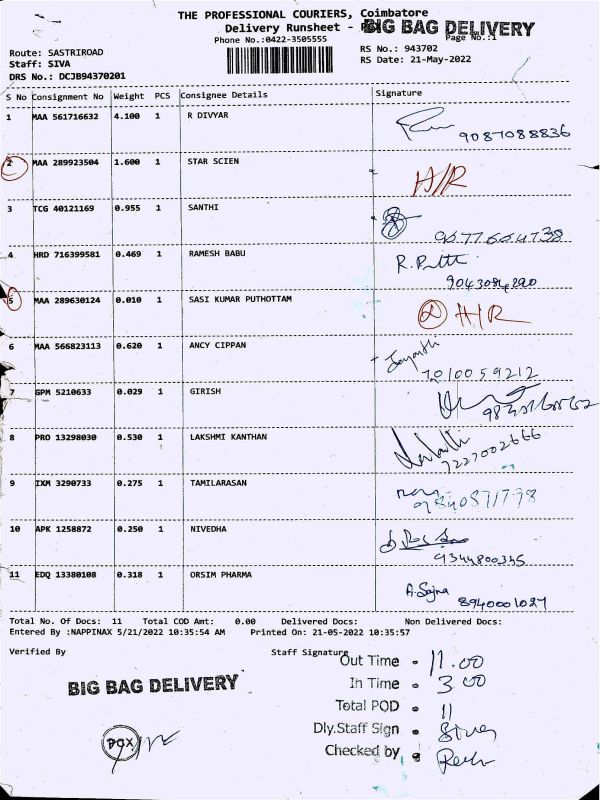 THE PROFESSIONAL COURIERS, Coimbatore
Delivery Runsheet - BIG BAG DELIVERY
Phone No.:0422-3505555 Page No.:1
Route: SASTRIROAD RS No.: 943702
Staff: SIVA RS Date: 21-May-2022
DRS No.: DCJB94370201
S No Consignment No Weight PCS Consignee Details Signature
1 MAA 561716632 4.100 1 R DIVYAR
9087088836
2 MAA 289923504 1.600 1 STAR SCIEN
H/R
3 TCG 40121169 0.955 1 SANTHI
4 HRD 716399581 0.469 1 RAMESH BABU
5 MAA 289630124 0.010 1 SASI KUMAR PUTHOTTAM
H/R
6 MAA 566823113 0.620 1 ANCY CIPPAN
7010059212
7 GPM 5210633 0.029 1 GIRISH
8 PRO 13298030 0.530 1 LAKSHMI KANTHAN
7227002666
9 IXM 3290733 0.275 1 TAMILARASAN
10 APK 1258872 0.250 1 NIVEDHA
9344800345
11 EDQ 13380108 0.318 1 ORSIM PHARMA
A. Sajna
8940001027
Total No. Of Docs: 11 Total COD Amt: 0.00 Delivered Docs: Non Delivered Docs:
Entered By :NAPPINAX 5/21/2022 10:35:54 AM Printed On: 21-05-2022 10:35:57
Verified By Staff Signature
Out Time - 11.00
In Time - 3.00
BIG BAG DELIVERY
Total POD - 11
Dly.Staff Sign -
Checked by -
DOX